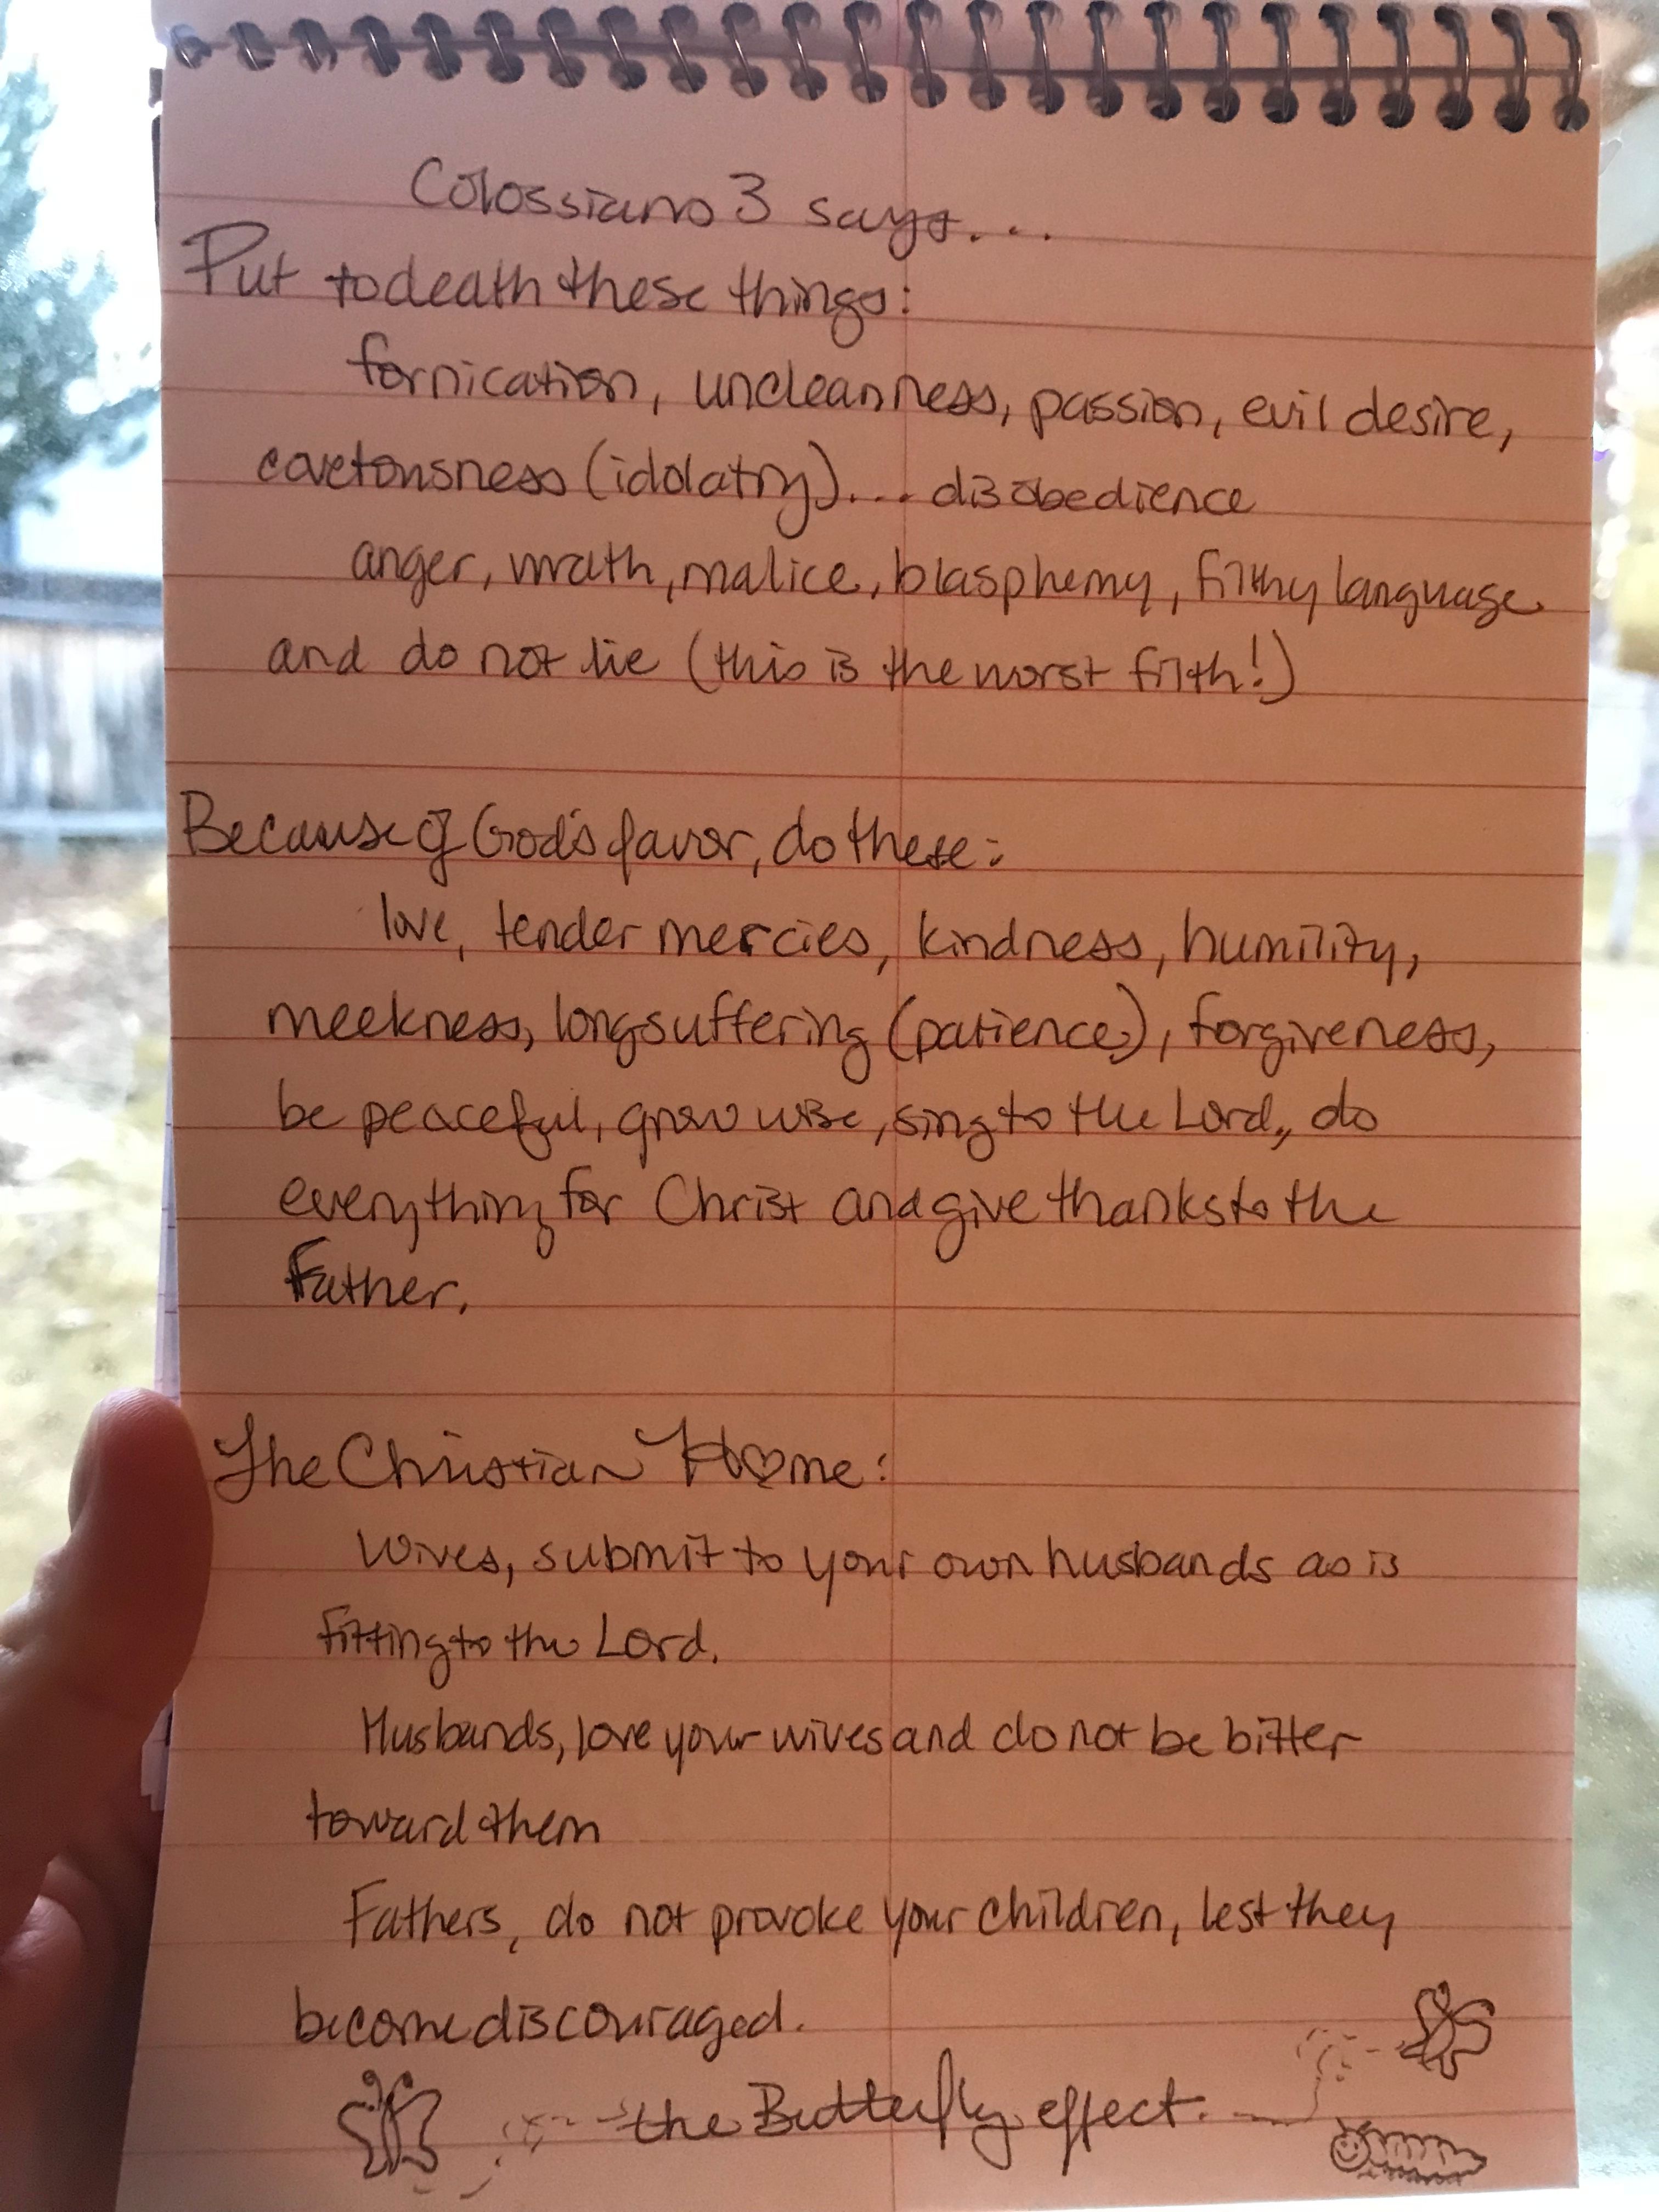 Colossians 3 says...
Put to death these things:
fornication, uncleanness, passion, evil desire,
covetousness (idolatry)... disobedience
anger, wrath, malice, blasphemy, filthy language
and do not lie (this is the worst filth!)
Because of God's favor, do these:
love, tender mercies, kindness, humility,
meekness, longsuffering (patience), forgiveness,
be peaceful, grow wise, sing to the Lord, do
everything for Christ and give thanks to the
Father.
The Christian Home:
Wives, submit to your own husbands as is
fitting to the Lord.
Husbands, love your wives and do not be bitter
toward them
Fathers, do not provoke your children, lest they
become discouraged.
the Butterfly effect.